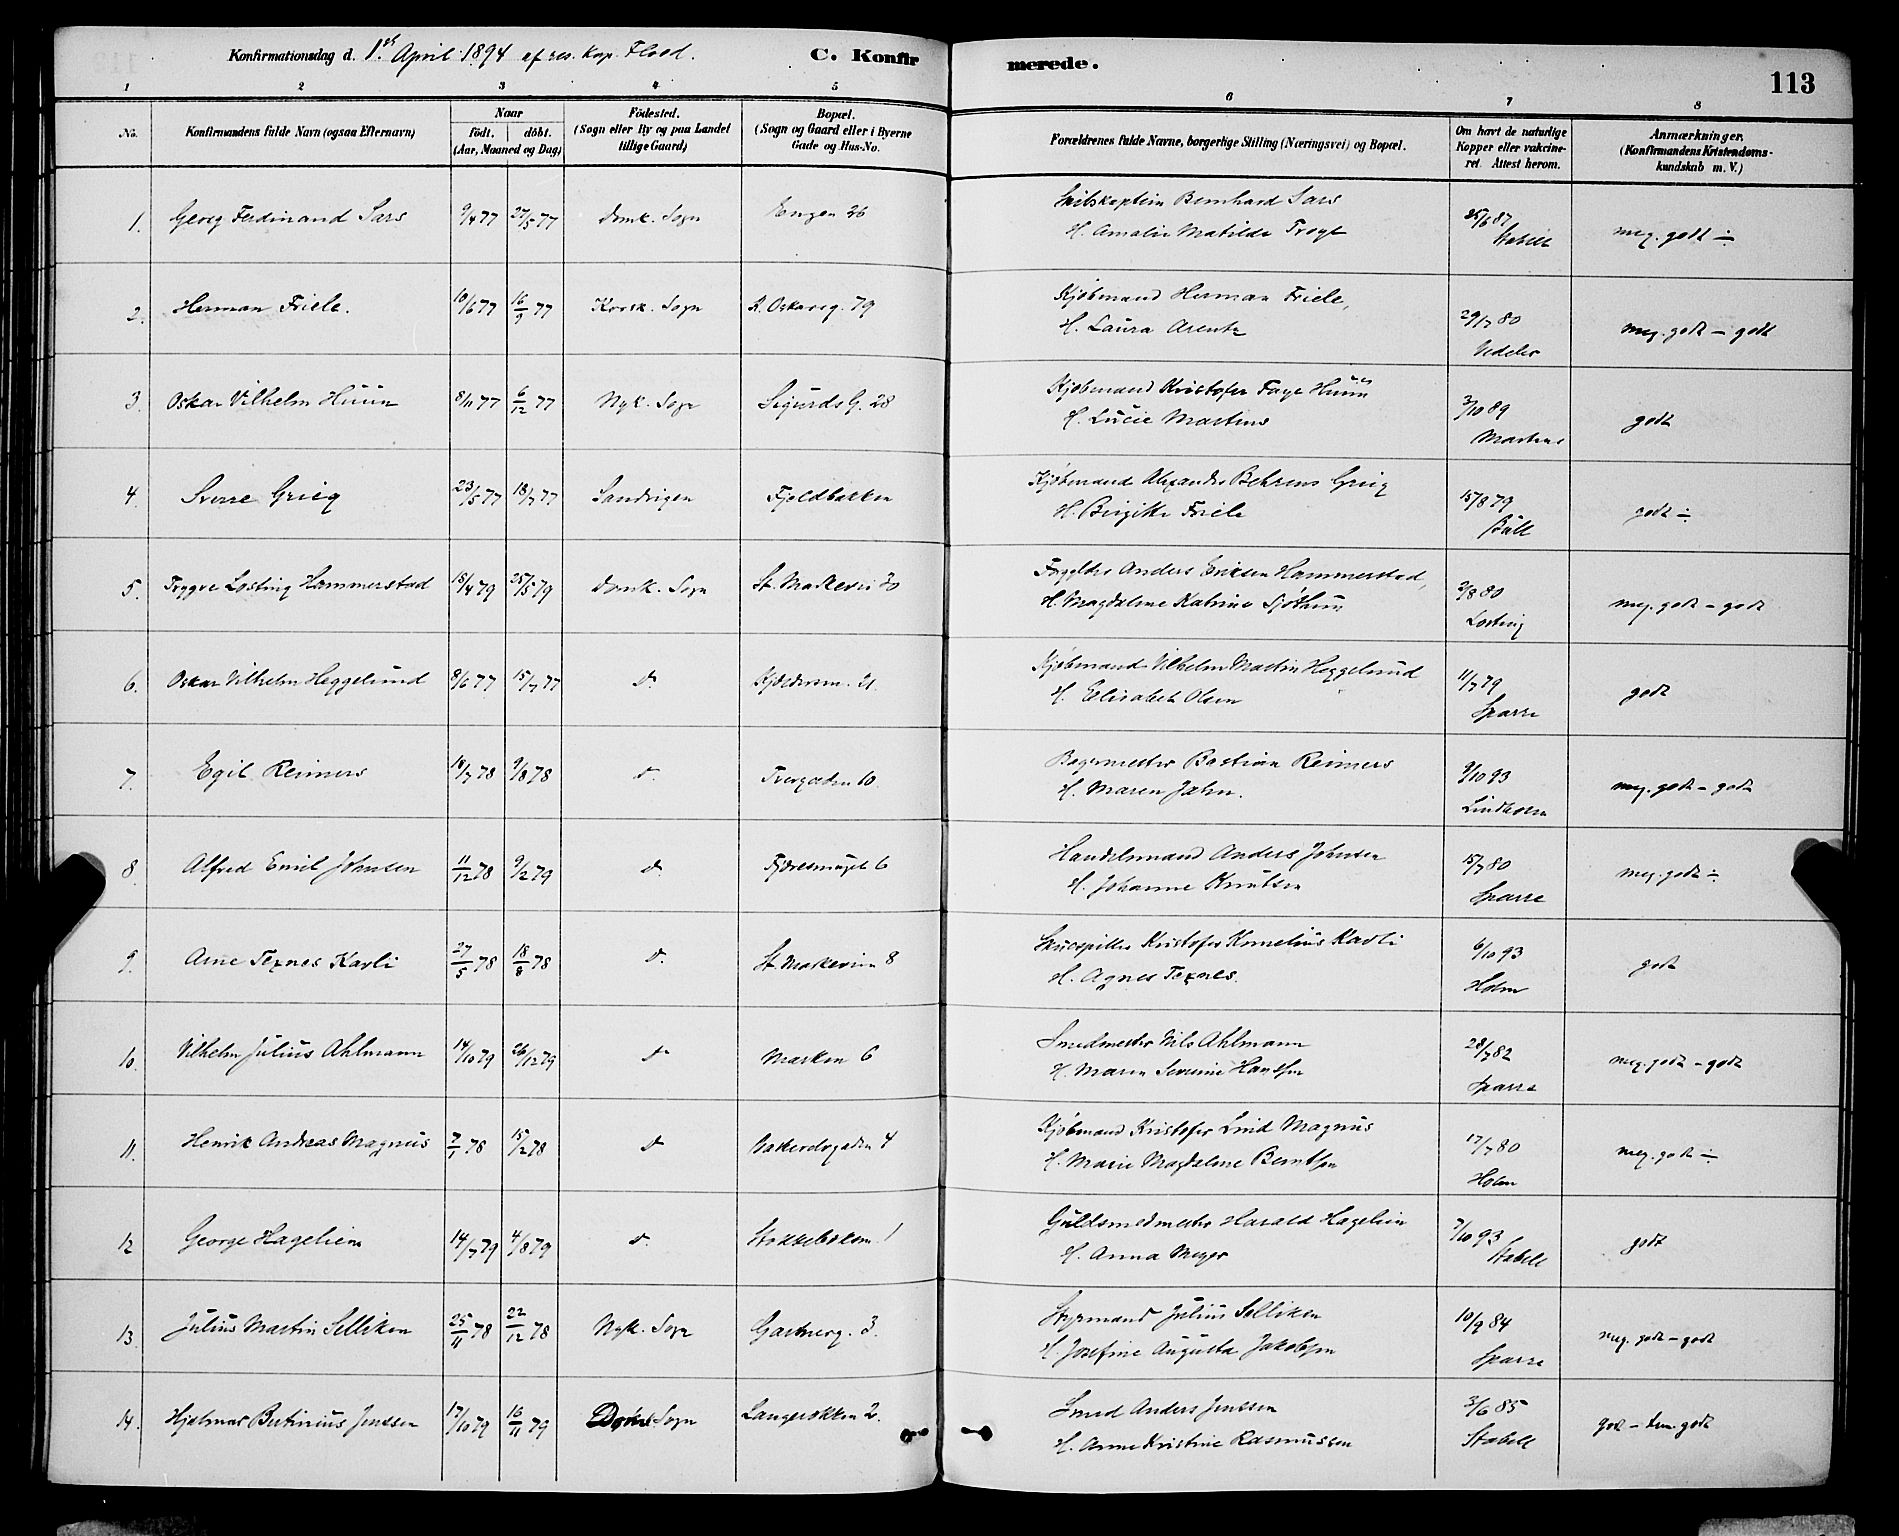 Konfirmationsdag d. 1st April 1894 af res. Kap. Flood. C. Konfirmerede. 113
1 2 3 4 5 6 7 8
No. Konfirmandens fulde Navn (ogsaa Efternavn) Naar født. døbt. (Aar, Maaned og Dag) Födested. (Sogn eller By og paa Landet tillige Gaard) Bopæl. (Sogn og Gaard eller i Byerne Gade og Hus-No. Forældrenes fulde Navne, borgerlige Stilling (Næringsvei) og Bopæl. Om havt de naturlige Kopper eller vakcineret. Attest herom. Anmærkninger. (Konfirmandens Kristendomskundskab m. V.)
1. Georg Ferdinand Sars 9/4 77 27/5 77 Domk. Sogn Engen 26 Skibskaptein Bernhard Sars 25/6 87 meg. godt ÷
H. Amalie Matilde Stabell
2. Herman Friele. 10/6 77 16/9 77 Korsk. Sogn K. Oskarsg. 79 Kjøbmand Herman Friele, 29/7 80 meg. godt – godt
H. Laura Arentz Vedeler
3. Oskar Vilhelm Huun 8/11 77 6/12 77 Nyk. Sogn Sigurds G. 28 Kjøbmand Kristofer Faye Huun 3/10 89 godt
H. Lucie Martens Martens
4 Sverre Grieg 23/5 77 18/7 77 Sandvigen Fjeldbakken Kjøbmand Alexander Behrens Grieg 15/8 79 godt ÷
H. Birgitte Friele Bull
5. Tryggve Losting Hammerstad 15/4 79 25/5 79 Domk. Sogn St. Markevei 30 Anders Eriksen Hammerstad, 2/8 80 meg. godt – godt
H. Magdalene Katrine Losting
6. Oskar Vilhelm Heggelund 8/6 77 15/7 77 do. 21. Kjøbmand Vilhelm Martin Heggelund 11/7 79 godt
H. Elisabeth Olsen Sparre
7. Egil Reimers 18/7 78 9/8 78 do. Tvergaden 10. Bagermester Bastian Reimers 9/10 93 meg. godt – godt
H. Maren Jahn. Lindholm
8. Alfred Emil Johnsen 11/12 78 9/2 79 do. 6 Handelsmand Anders Johnsen 15/7 80 meg. godt ÷
H. Johanne Knutsen Sparre
9. Arne Texnes Kavli 27/5 78 18/8 78 do. St. Markevei 8 Skuespiller Kristofer Kornelius Kavli 6/10 93 godt
H. Agnes Texnes. Holm
10. Vilhelm Julius Ahlmann 14/10 79 26/12 79 do. Marken 6 Smedmester Nils Ahlmann 28/7 82 meg. godt – godt
H. Maren Severine Hansen Sparre
11. Henrik Andreas Magnus 7/1 78 15/2 78 do. 4 Kjøbmand Kristofer Lind Magnus 17/7 80 meg. godt ÷
H. Marie Magdalene Berntsen Holm
12 George Hagelien 14/7 79 4/8 79 do. 1 Guldsmedmester Harald Hagelien 7/10 93 godt
H. Anna Meyer Stabell
13. Julius Martin Selliken 25/11 78 22/12 78 Nyk. Sogn Gartnerg. 3. Styrmand Julius Selliken 10/9 84 meg. godt – godt
H. Josefine Augusta Jakobsen Sparre
14. Hjalmar Bertinius Jenssen 17/10 79 16/11 79 Domk. Sogn 2. Smed Anders Jenssen 3/6 85 godt – tem. godt
H. Anne Kristine Rasmussen Stabell